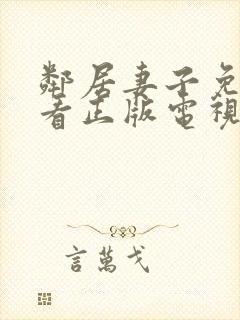 鄰居妻子免
看正版電視
言萬戈